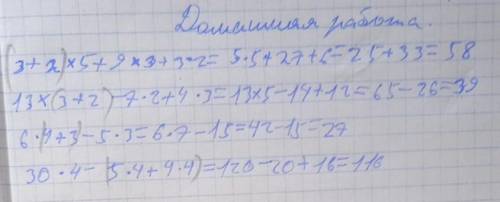 Домашняя работа.
(3+2)×5+9×3+3·2=5·5+27+6=25+33=58
13×(3+2)-7·2+4·3=13×5-14+12=65-26=39
6·(4+3)-5·3=6·7-15=42-15=27
30·4-(5·4+4·4)=120-20+16=116